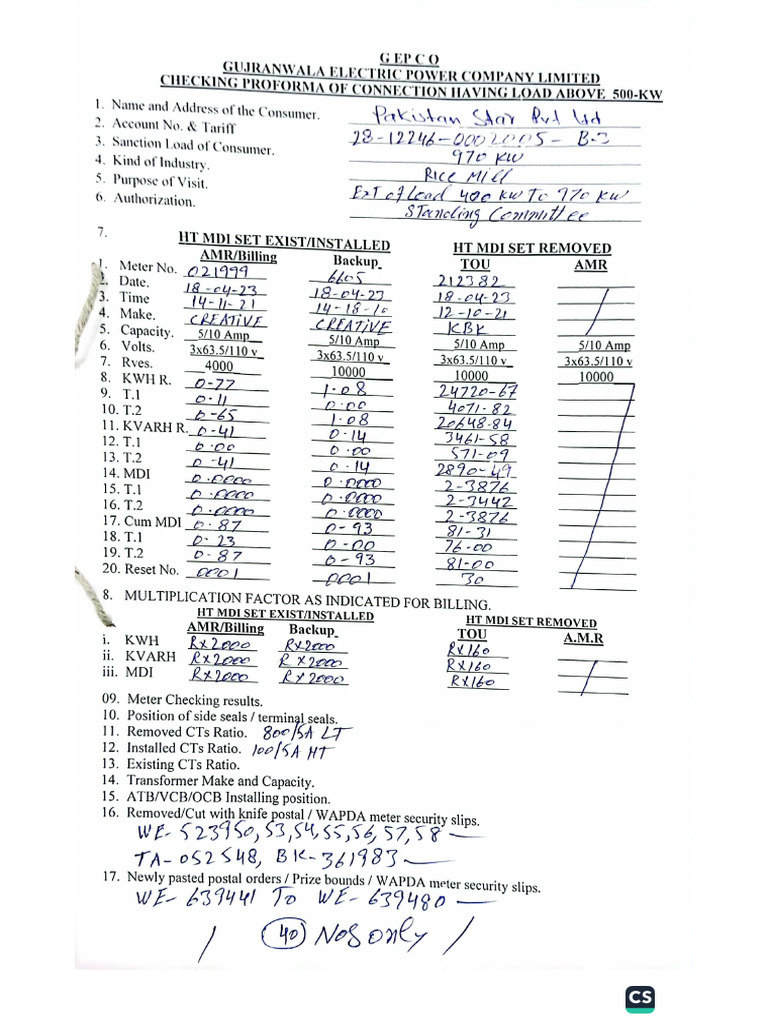 G EP C O
GUJRANWALA ELECTRIC POWER COMPANY LIMITED
CHECKING PROFORMA OF CONNECTION HAVING LOAD ABOVE 500-KW
1. Name and Address of the Consumer. Pakistan Star Pvt Ltd
2. Account No. & Tariff 28-12246-0002005- B-3
3. Sanction Load of Consumer. 970 KW
4. Kind of Industry. Rice Mill
5. Purpose of Visit. Ext of Load 400 KW To 970 KW
6. Authorization. Standing Committee
7. HT MDI SET EXIST/INSTALLED HT MDI SET REMOVED
AMR/Billing Backup TOU AMR
1. Meter No. 021999 6605 212382
2. Date. 18-04-23 18-04-23 18-04-23
3. Time 14-11-21 14-18-10 12-10-21
4. Make. CREATIVE CREATIVE KBK
5. Capacity. 5/10 Amp 5/10 Amp 5/10 Amp 5/10 Amp
6. Volts. 3x63.5/110 v 3x63.5/110 v 3x63.5/110 v 3x63.5/110 v
7. Rves. 4000 10000 10000 10000
8. KWH R. 0-77 1-08 24720-67
9. T.1 0-11 0-00 4071-82
10. T.2 0-65 1-08 20648-84
11. KVARH R. 0-41 0-14 3461-58
12. T.1 0-00 0-00 571-09
13. T.2 0-41 0-14 2890-49
14. MDI 0.0000 0.0000 2-3876
15. T.1 0.0000 0.0000 2-3442
16. T.2 0.0000 0.0000 2-3876
17. Cum MDI 0-87 0-93 81-31
18. T.1 0-23 0-00 76-00
19. T.2 0-87 0-93 81-00
20. Reset No. 0001 0001 30
8. MULTIPLICATION FACTOR AS INDICATED FOR BILLING.
HT MDI SET EXIST/INSTALLED HT MDI SET REMOVED
AMR/Billing Backup TOU A.M.R
i. KWH Rx2000 Rx2000 Rx160
ii. KVARH Rx2000 Rx2000 Rx160
iii. MDI Rx2000 Rx2000 Rx160
09. Meter Checking results.
10. Position of side seals / terminal seals.
11. Removed CTs Ratio. 800/5A LT
12. Installed CTs Ratio. 100/5A HT
13. Existing CTs Ratio.
14. Transformer Make and Capacity.
15. ATB/VCB/OCB Installing position.
16. Removed/Cut with knife postal / WAPDA meter security slips.
WE- 523950, 53, 54, 55, 56, 57, 58 —
TA-052548, BK-361983 —
17. Newly pasted postal orders / Prize bounds / WAPDA meter security slips.
WE- 639441 To WE- 639480 —
/ (40) Nos only /
CS